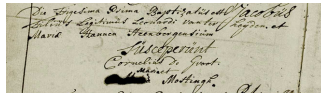 Die Trigesima Prima Baptizatus est Jacobus
Filius Legitimus Leonardi van ter Heyden, et
Mariæ Hannen Steenbergensium
Susceperunt
Cornelius de Groot.
Mostingh.